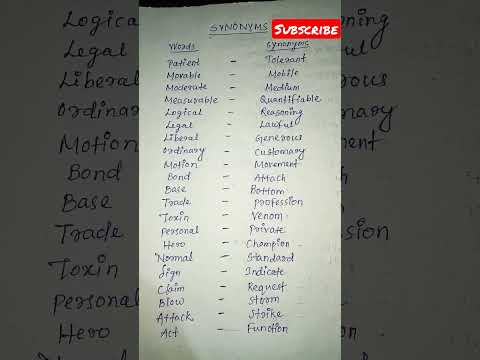 SYNONYMS
SUBSCRIBE
Words Synonyms
Patient - Tolerant
Movable - Mobile
Moderate - Medium
Measurable - Quantifiable
Logical - Reasoning
Legal - Lawful
Liberal - Generous
Ordinary - Customary
Motion - Movement
Bond - Attach
Base - Bottom
Trade - Profession
Toxin - Venom
Personal - Private
Hero - Champion
Normal - Standard
Sign - Indicate
Claim - Request
Blow - Storm
Attack - Strike
Act - Function
Logical
Legal
Liberal
Ordinary
Motion
Bond
Base
Trade
Toxin
Personal
Hero